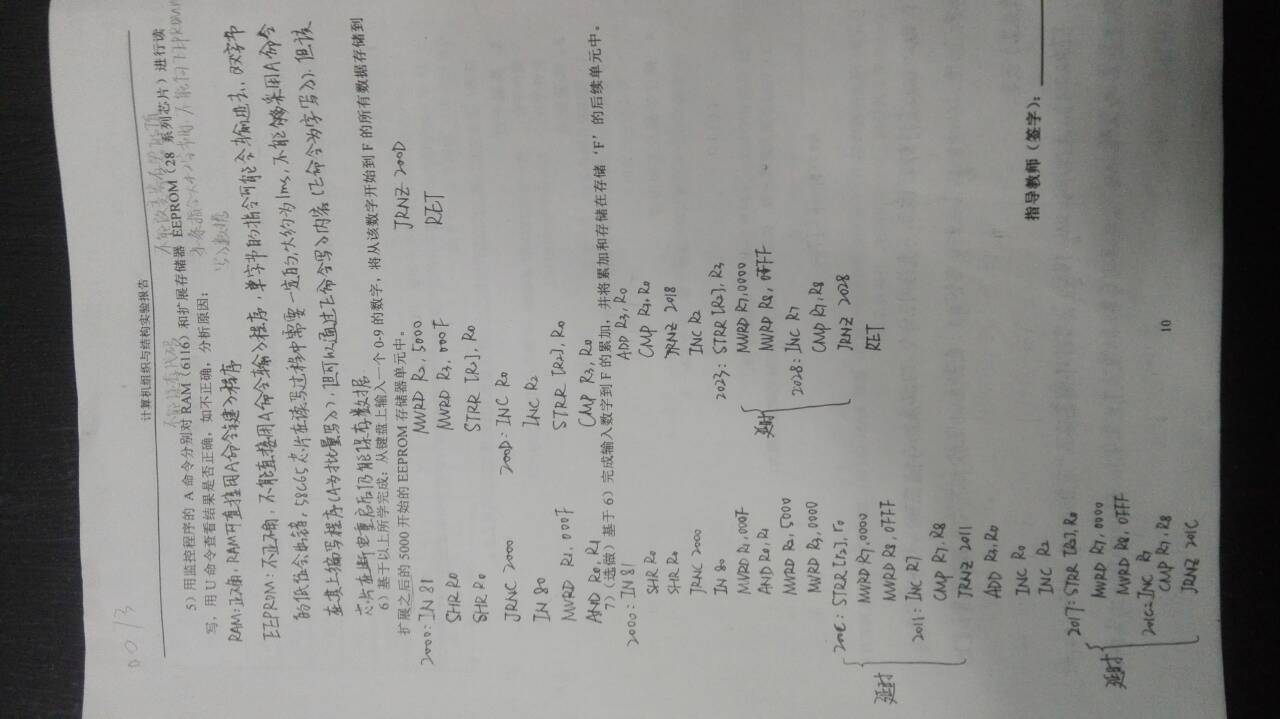 0013
计算机组织与结构实验报告
5）用监控程序的 A 命令分别对 RAM（6116）和扩展存储器 EEPROM（28 系列芯片）进行读
写，用 U 命令查看结果是否正确，如不正确，分析原因；
写入数据
RAM:正确，RAM可直接用A命令键入程序
EEPROM：不正确，不能直接用A命令输入程序，单字节的指令可能会输进去，双字节
的低位会出错，58C65芯片在读写过程中需要一定的，大约为1ms，不能够采用A命令
在其上编写程序（A为批量写入），但可以通过E命令写入内容（E命令为字写入）．但该
芯片在断电重启后仍能保存数据
6）基于以上所学完成：从键盘上输入一个 0-9 的数字，将从该数字开始到 F 的所有数据存储到
扩展之后的 5000 开始的 EEPROM 存储器单元中。
2000: IN 81
SHR R0
SHR R0
JRNC 2000
IN 80
MVRD R1, 000F
AND R0, R1
MVRD R2, 5000
MVRD R3, 000F
STRR [R2], R0
200D: INC R0
INC R2
STRR [R2], R0
CMP R3, R0
JRNZ 200D
RET
7）（选做）基于 6）完成输入数字到 F 的累加，并将累加和存储在存储‘F’的后续单元中。
2000: IN 81
SHR R0
SHR R0
JRNC 2000
IN 80
MVRD R1, 000F
AND R0, R1
MVRD R2, 5000
MVRD R3, 0000
200E: STRR [r2], r0
延时
MVRD R7, 0000
MVRD R8, 0FFF
2011: INC R7
CMP R7, R8
JRNZ 2011
ADD R3, R0
INC R0
INC R2
2017: STRR [R2], R0
延时
MVRD R7, 0000
MVRD R8, 0FFF
201C: INC R7
CMP R7, R8
JRNZ 201C
ADD R3, R0
CMP R9, R0
JRNZ 2018
INC R2
2023: STRR [R2], R3
延时
MVRD R7, 0000
MVRD R8, 0FFF
2028: INC R7
CMP R7, R8
JRNZ 2028
RET
指导教师（签字）：
10